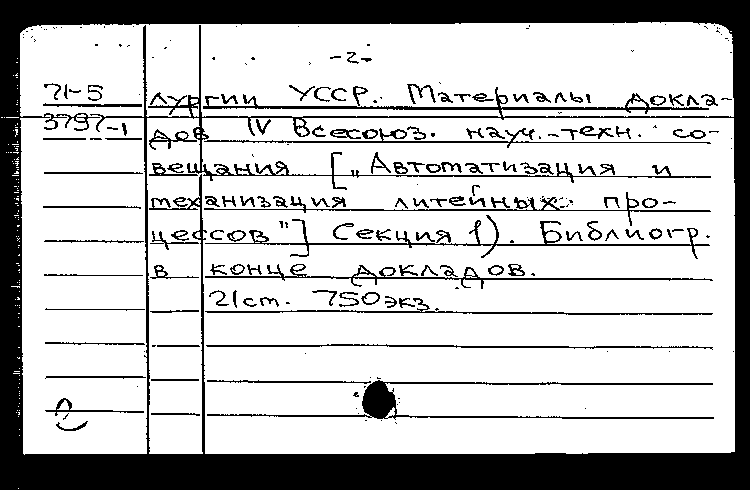 -2-
71-5
лургии УССР. Материалы докла-
3797-1
дов IV Всесоюз. науч.-техн. со-
вещания [„Автоматизация и
механизация литейных про-
цессов"] Секция 1). Библиогр.
в конце докладов.
21 ст. 750 экз.